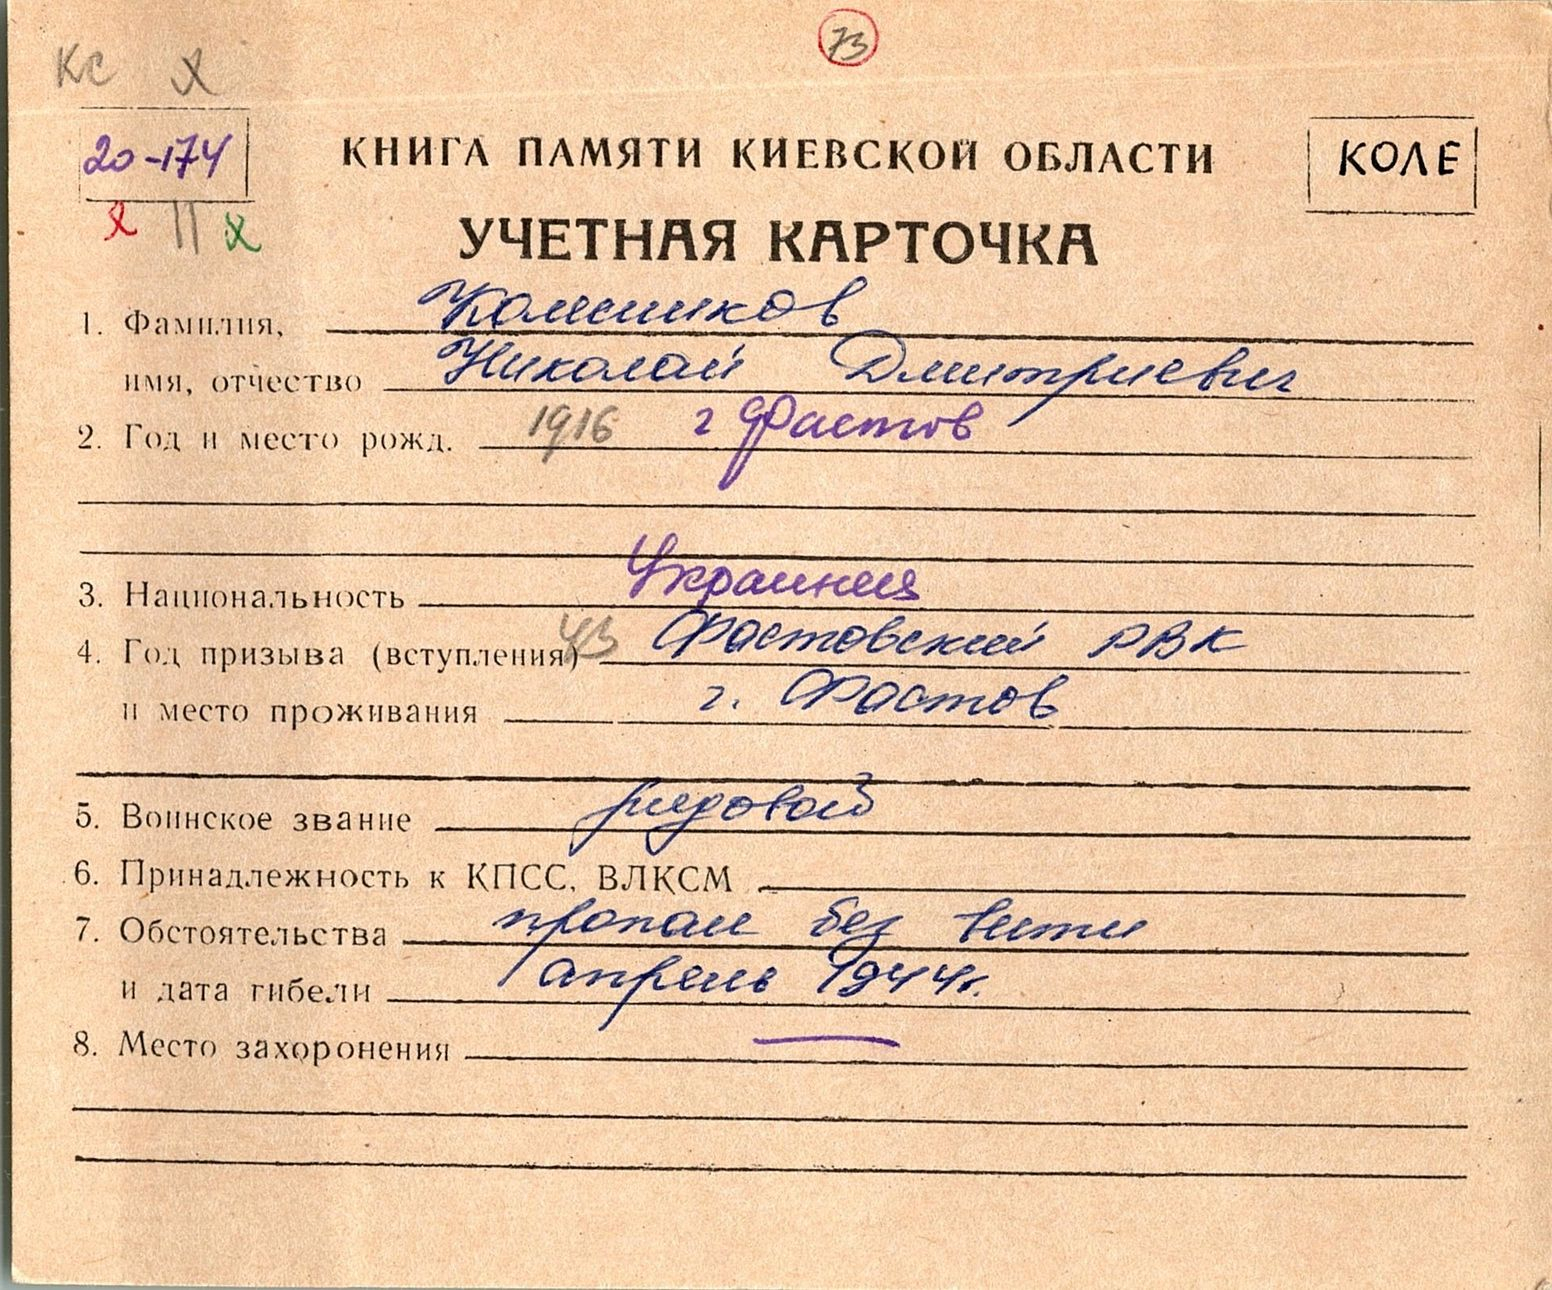 КС Х
73
20-174
КНИГА ПАМЯТИ КИЕВСКОЙ ОБЛАСТИ
КОЛЕ
х II х
УЧЕТНАЯ КАРТОЧКА
1. Фамилия, Колесников
имя, отчество Николай Дмитриевич
2. Год и место рожд. 1916 г Фастов
3. Национальность Украинец
4. Год призыва (вступления) 43 Фастовский РВК
и место проживания г. Фастов
5. Воинское звание рядовой
6. Принадлежность к КПСС, ВЛКСМ
7. Обстоятельства пропал без вести
и дата гибели апрель 1944г.
8. Место захоронения —